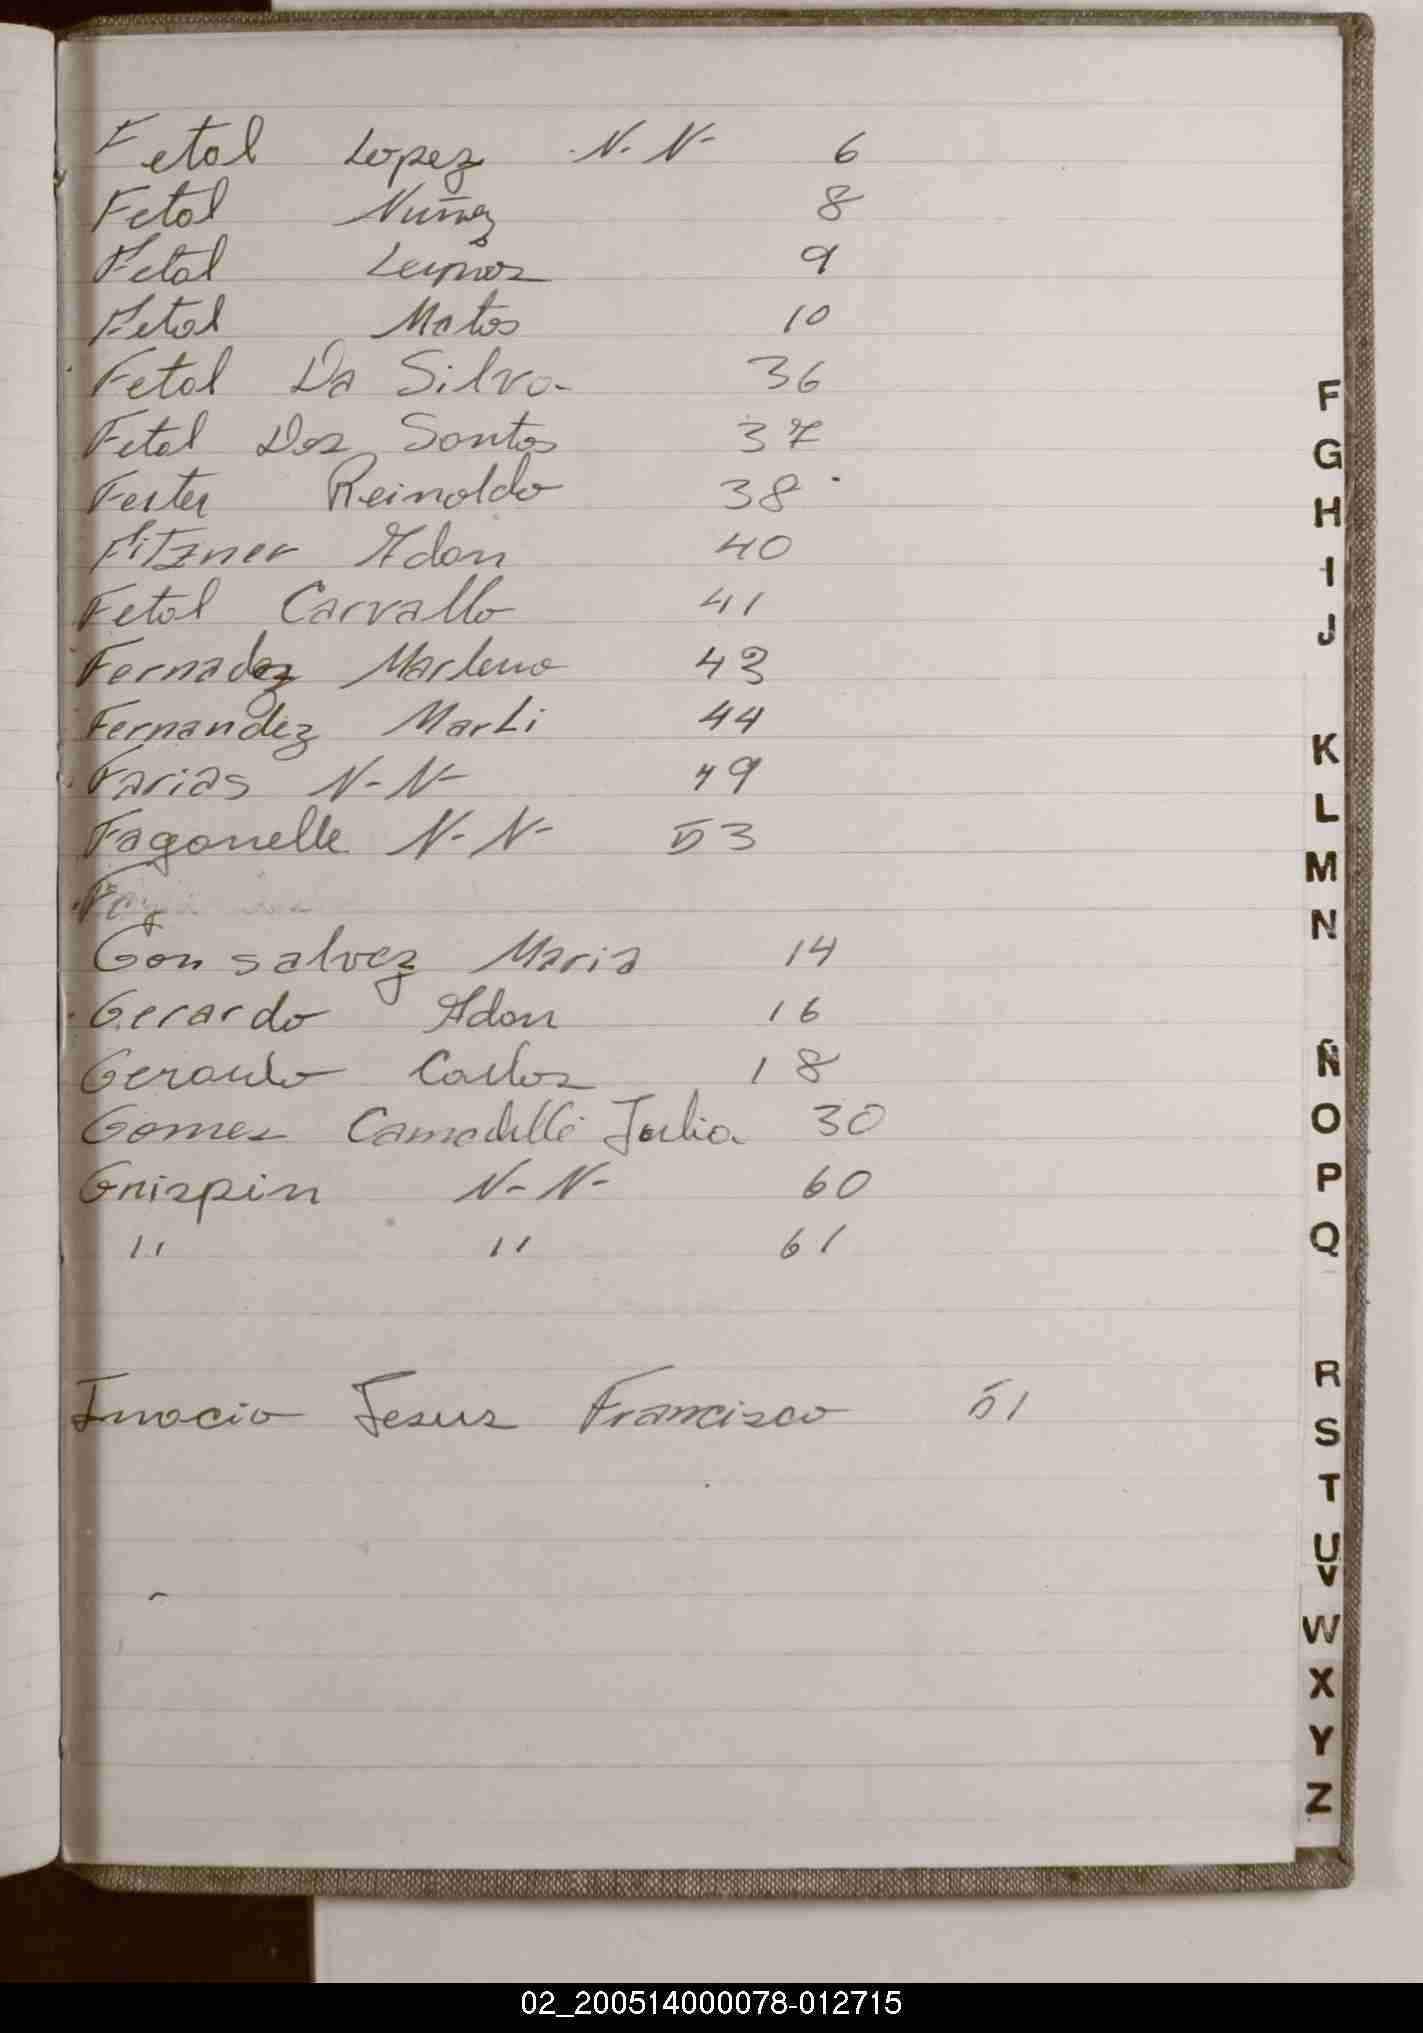 Fetal Lopez N-N- 6
Fetal Nuñez 8
Fetal 9
Fetal Matos 10
Fetal Da Silva 36
Fetal Dos Santos 37
Reinoldo 38
Fitzner Adan 40
Fetal Carvallo 41
Fernadez Marlene 43
Fernandez Marli 44
Farias N-N- 49
Fagonelle N-N- 53
Gonsalvez Maria 14
Gerardo Adan 16
Gerardo Carlos 18
Gomes Julia 30
Grispin N-N- 60
" " 61
Inocio Jesus Francisco 51
F
G
H
I
J
K
L
M
N
Ñ
O
P
Q
R
S
T
U
V
W
X
Y
Z
02_200514000078-012715